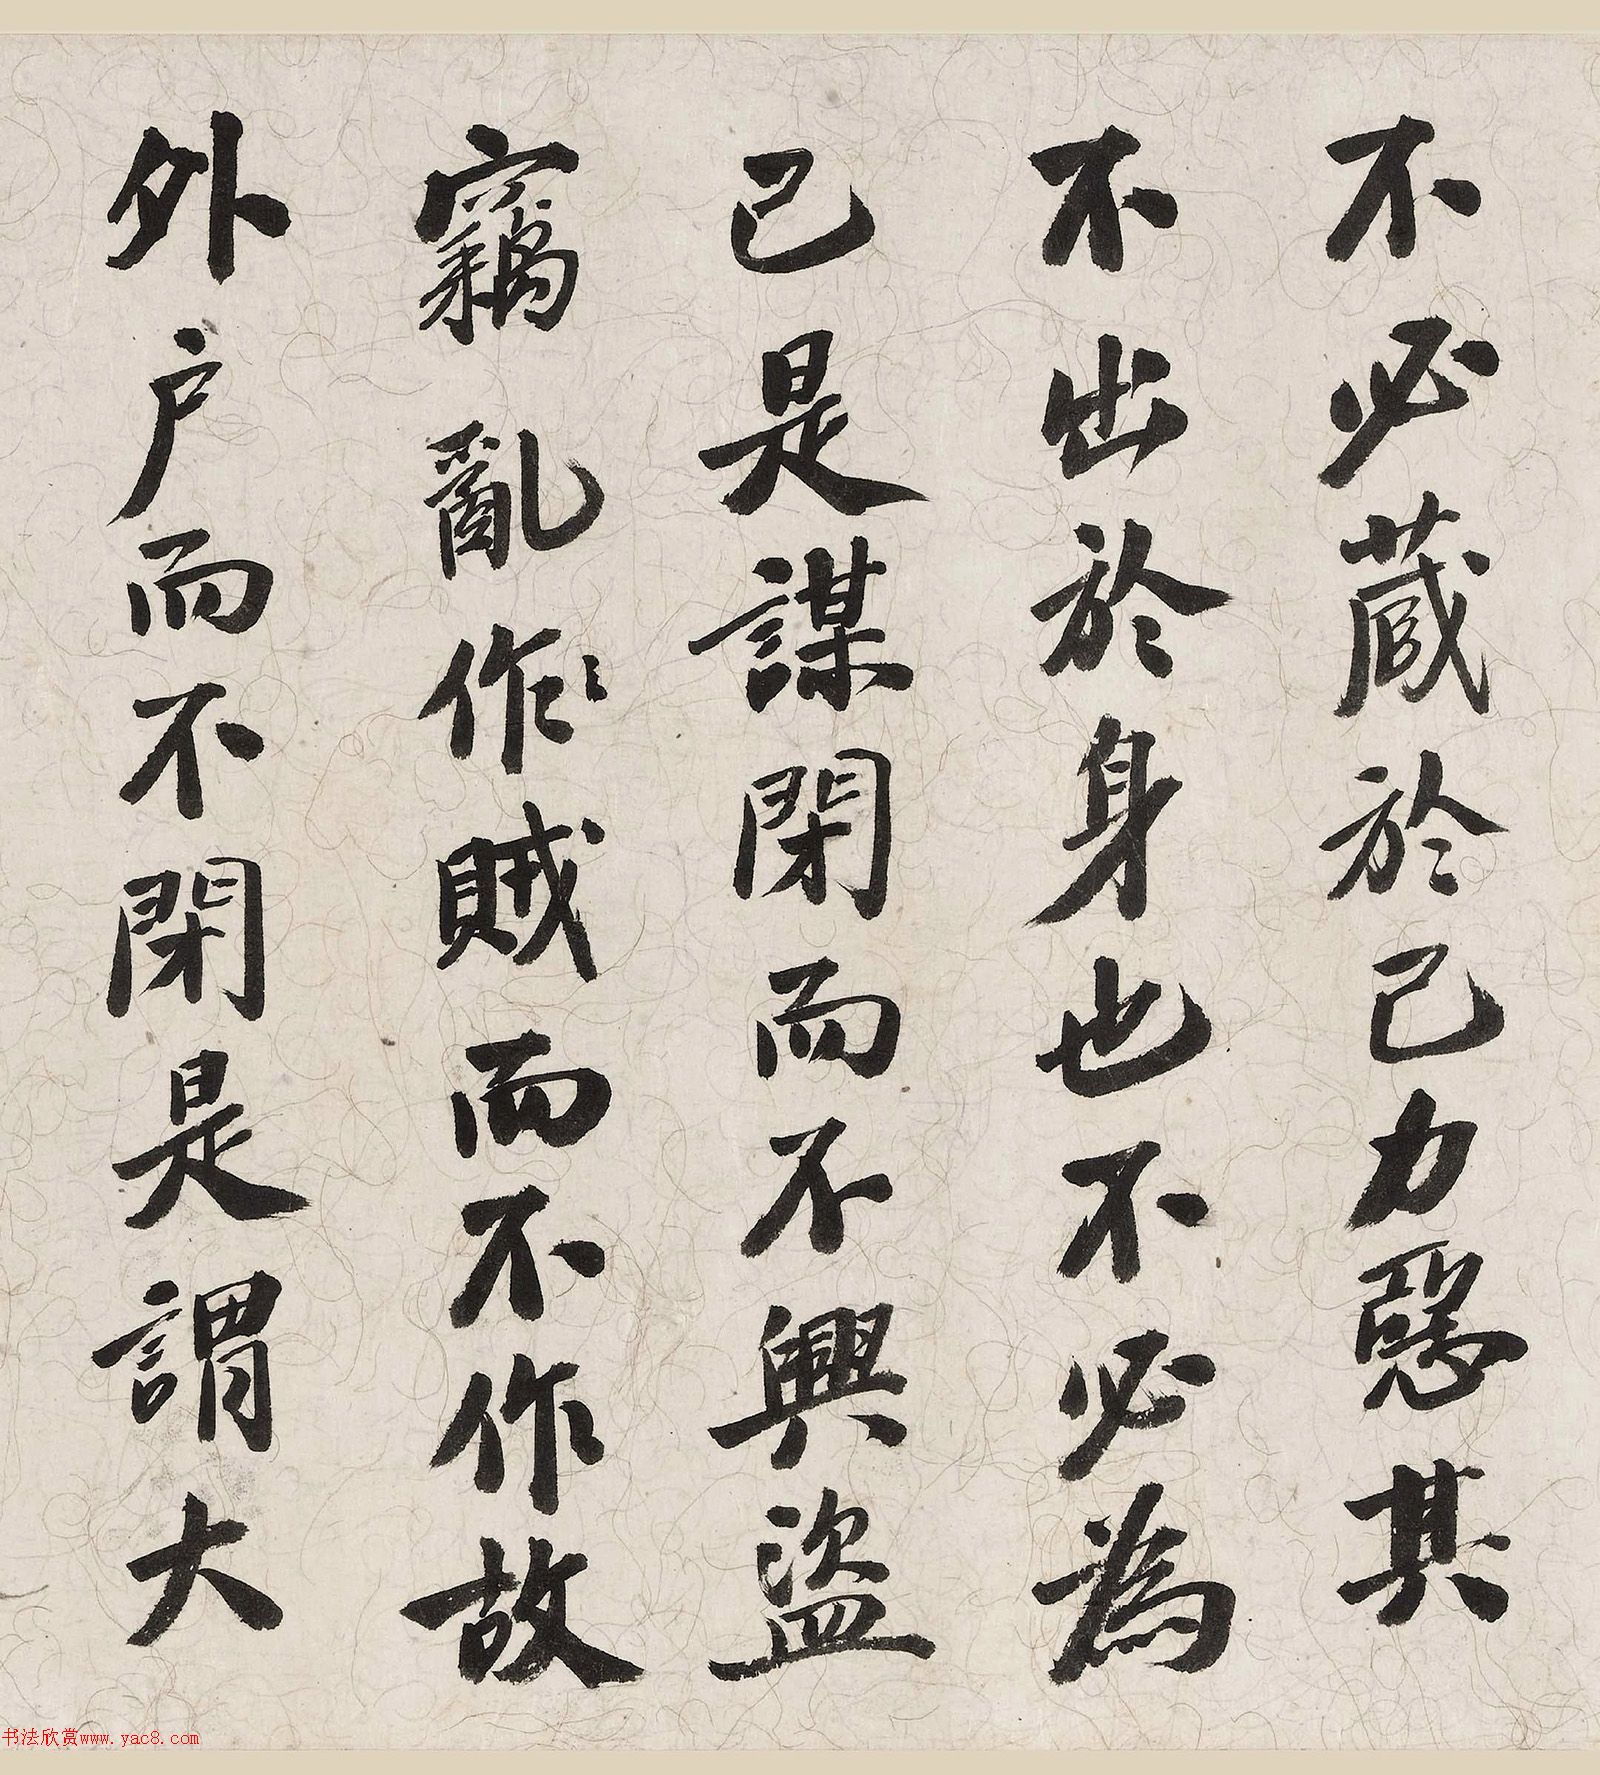 不必蔵於己力惡其
不出於身也不必為
己是謀閉而不興盜
竊亂作賊而不作故
外户而不閉是謂大
书法欣赏www.yac8.com